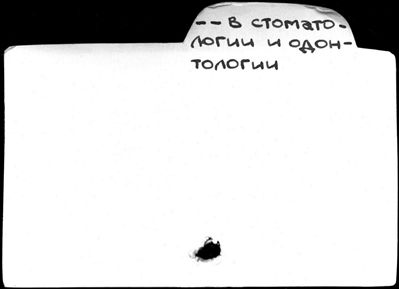 -- в стомато-
логии и одон-
тологии